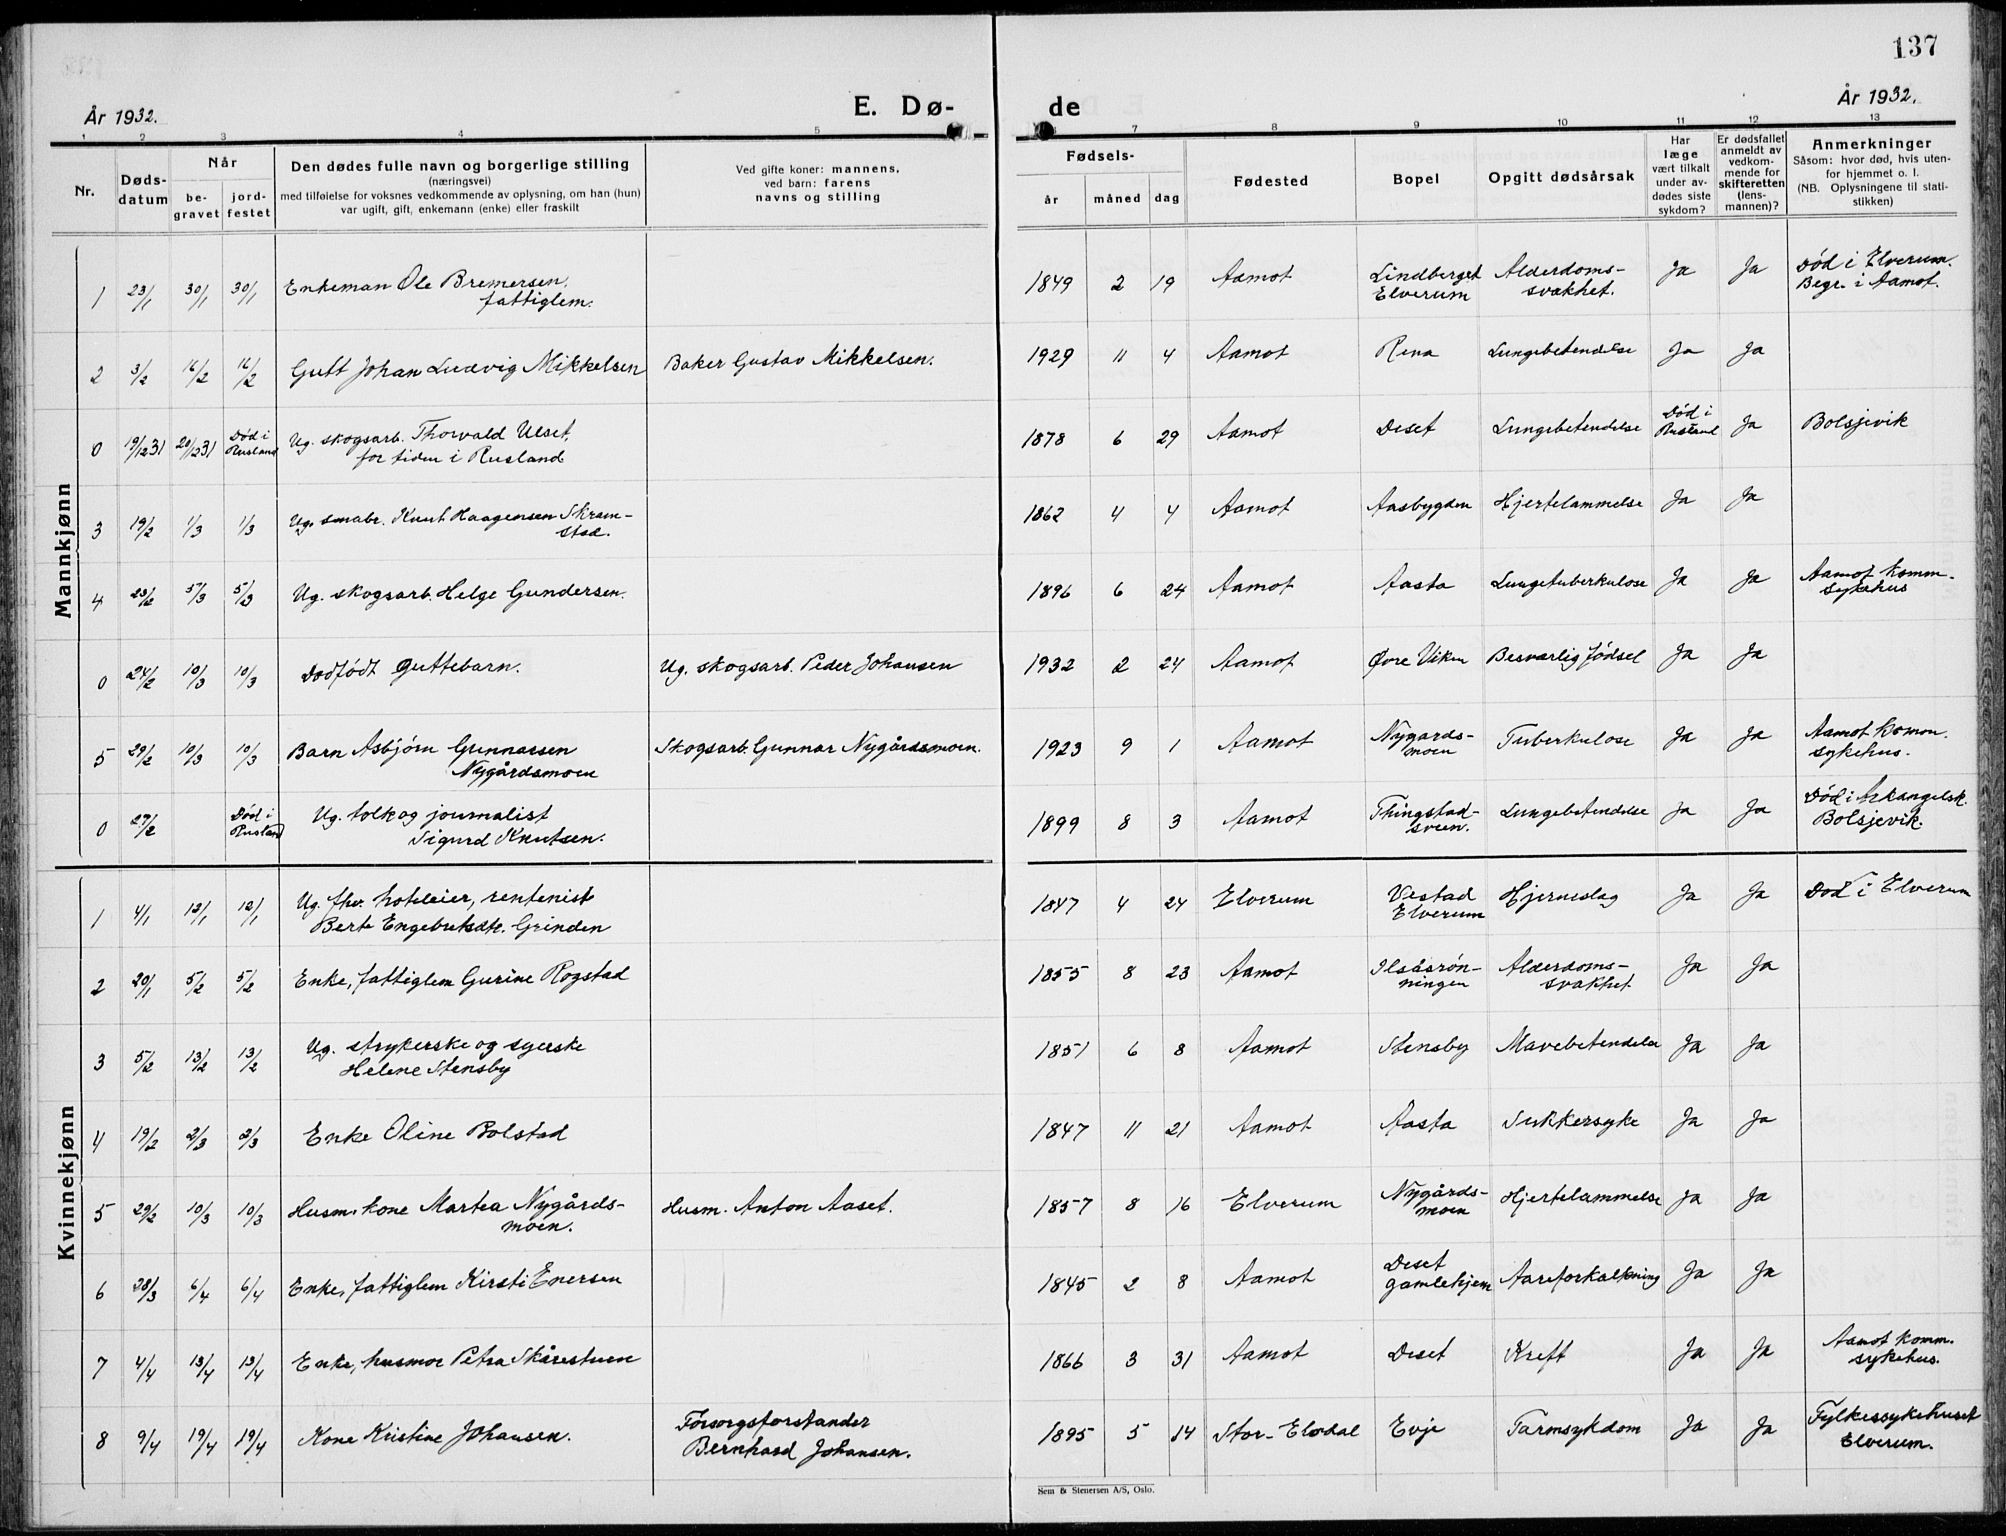 137
År 1932. E. Dø- de År 1932.
1 2 3 4 5 7 8 9 10 11 12 13
Nr. Dødsdatum Når begravet jordfestet
Den dødes fulle navn og borgerlige stilling
(næringsvei)
med tilføielse for voksnes vedkommende av oplysning, om han (hun)
var ugift, gift, enkemann (enke) eller fraskilt
Ved gifte koner: mannens,
ved barn: farens
navns og stilling
Fødsels-
år måned dag
Fødested
Bopel
Opgitt dødsårsak
Har
læge
vært tilkalt
under av-
dødes siste
sykdom?
Er dødsfallet
anmeldt av
vedkom-
mende for
skifteretten
(lens-
mannen)?
Anmerkninger
Såsom: hvor død, hvis uten-
for hjemmet o. l.
(NB. Oplysningene til stati-
stikken)
Mannkjønn
1 23/1 30/1 30/1 Enkeman Ole Bremersen, fattiglem. 1849 2 19 Aamot Lindberget Elverum Alderdoms-svakhet. Ja Ja Død i Elverum. Begr. i Aamot.
2 3/2 16/2 16/2 Gutt Johan Ludvig Mikkelsen Baker Gustav Mikkelsen. 1929 11 4 Aamot Rena Lungebetendelse Ja Ja
0 19/12 31 20/12 31 Død i Rusland Ug. skogsarb. Thorvald Ulset, for tiden i Rusland 1878 6 29 Aamot Deset Lungebetendelse Død i Rusland Ja Bolsjevik
3 19/2 1/3 1/3 Ug. smabr. Knut Haagensen Skram-stad. 1862 4 4 Aamot Aasbygden Hjertelammelse Ja Ja
4 23/2 5/3 5/3 Ug. skogsarb. Helge Gundersen. 1896 6 24 Aamot Aasta Lungetuberkulose Ja Ja Aamot komm. sykehus
0 24/2 10/3 10/3 Dødfødt guttebarn. Ug. skogsarb. Peder Johansen 1932 2 24 Aamot Øvre Viken Besværlig fødsel Ja Ja
5 29/2 10/3 10/3 Barn Asbjørn Gunnarsen Nygårdsmoen Skogsarb. Gunnar Nygårdsmoen. 1923 9 1 Aamot Nygards-moen Tuberkulose Ja Ja Aamot komm. sykehus.
0 27/2 Død i Rusland Ug. tolk og journalist Sigurd Knutsen. 1899 8 3 Aamot Thingstad-sveen. Lungebetendelse Ja Ja Død i Arkangelsk. Bolsjevik.
Kvinnekjønn
1 4/1 12/1 12/1 Ug. fhv. hoteleier, rentenist Berte Engebretsdtr. Grinden 1847 4 24 Elverum Vestad Elverum Hjerneslag Ja Ja Død i Elverum
2 20/1 5/2 5/2 Enke, fattiglem Gurine Rogstad 1855 8 23 Aamot Ilsåsrøn-ningen Alderdoms-svakhet Ja Ja
3 5/2 13/2 13/2 Ug. strykerske og syerske Helene Stensby 1851 6 8 Aamot Stensby Mavebetendelse Ja Ja
4 19/2 2/3 2/3 Enke Oline Bolstad 1847 11 21 Aamot Aasta Sukkersyke Ja Ja
5 29/2 10/3 10/3 Husm. kone Martea Nygårds-moen. Husm. Anton Aaset. 1857 8 16 Elverum Nygårds-moen Hjertelammelse Ja Ja
6 28/3 6/4 6/4 Enke, fattiglem Kirsti Enersen 1845 2 8 Aamot Deset gamlehjem Aareforkalkning Ja Ja
7 4/4 13/4 13/4 Enke, husmor Petra Skårestuen 1866 3 31 Aamot Deset Kreft Ja Ja Aamot komm. sykehus.
8 9/4 19/4 19/4 Kone Kristine Johansen. Forsorgsforstander Bernhard Johansen. 1895 5 14 Stor-Elvdal Evje Tarmsykdom Ja Ja Fylkessykehuset Elverum.
Sem & Stenersen A/S, Oslo.